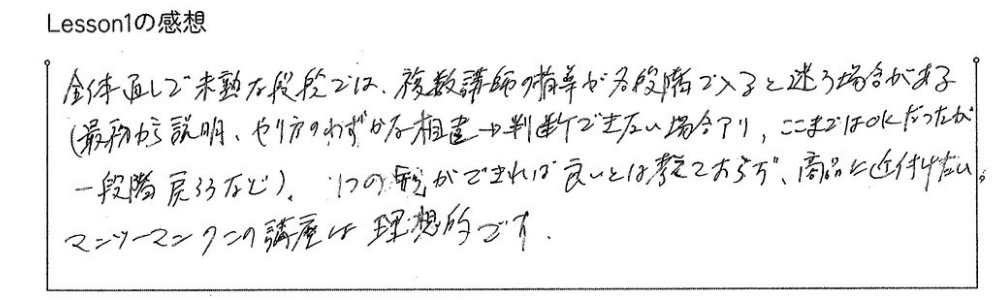 Lesson1の感想
全体通しで未熟な段段では、複数講師の指導が各段階で入ると迷う場合がある
(最初から説明、やり方のわずかな相違→判断できない場合アリ、ここまではOKだったが
一段階戻ろうなど)、1つの形ができれば良いとは考えておらず、商品に近付けたい。
マンツーマンのこの講座は理想的です.